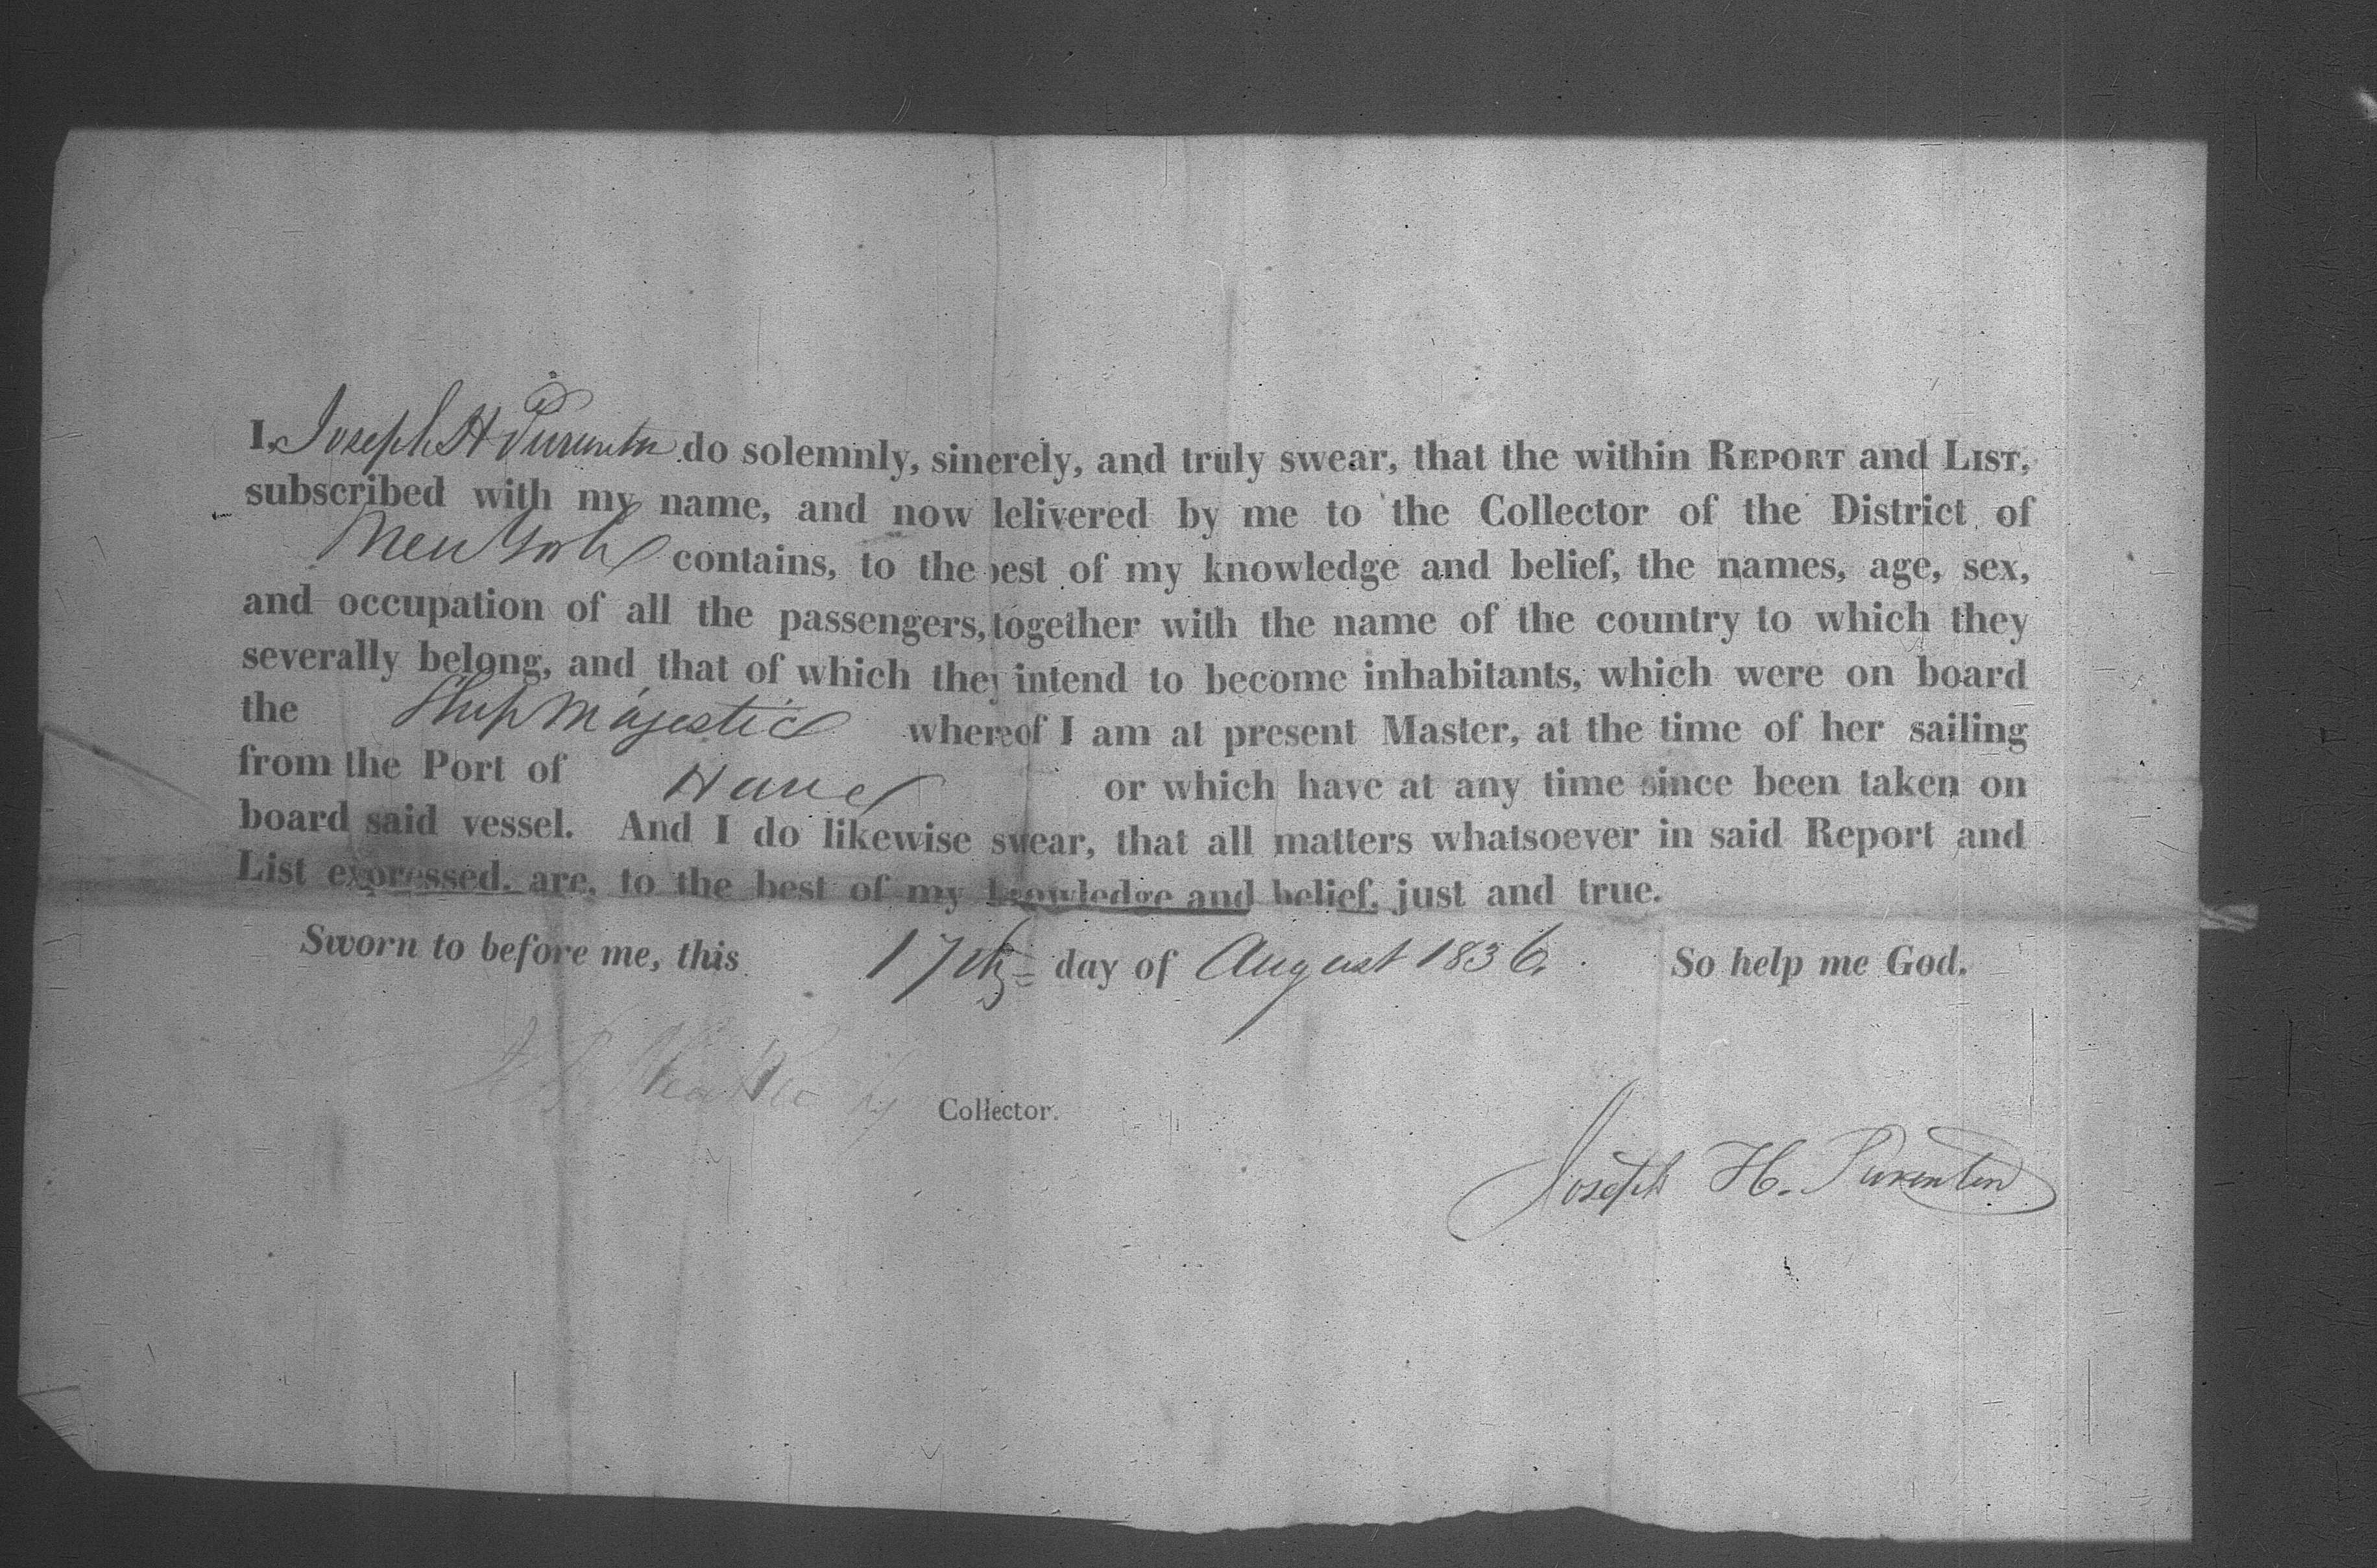 I, Joseph H Purinton do solemnly, sincerely, and truly swear, that the within REPORT and LIST,
subscribed with my name, and now delivered by me to the Collector of the District of
New York contains, to the best of my knowledge and belief, the names, age, sex,
and occupation of all the passengers, together with the name of the country to which they
severally belong, and that of which they intend to become inhabitants, which were on board
the Ship Majestic whereof I am at present Master, at the time of her sailing
from the Port of Havre or which have at any time since been taken on
board said vessel. And I do likewise swear, that all matters whatsoever in said Report and
List expressed, are, to the best of my knowledge and belief, just and true.
Sworn to before me, this 17th day of August 1836. So help me God.
Collector.
Joseph H. Purenton